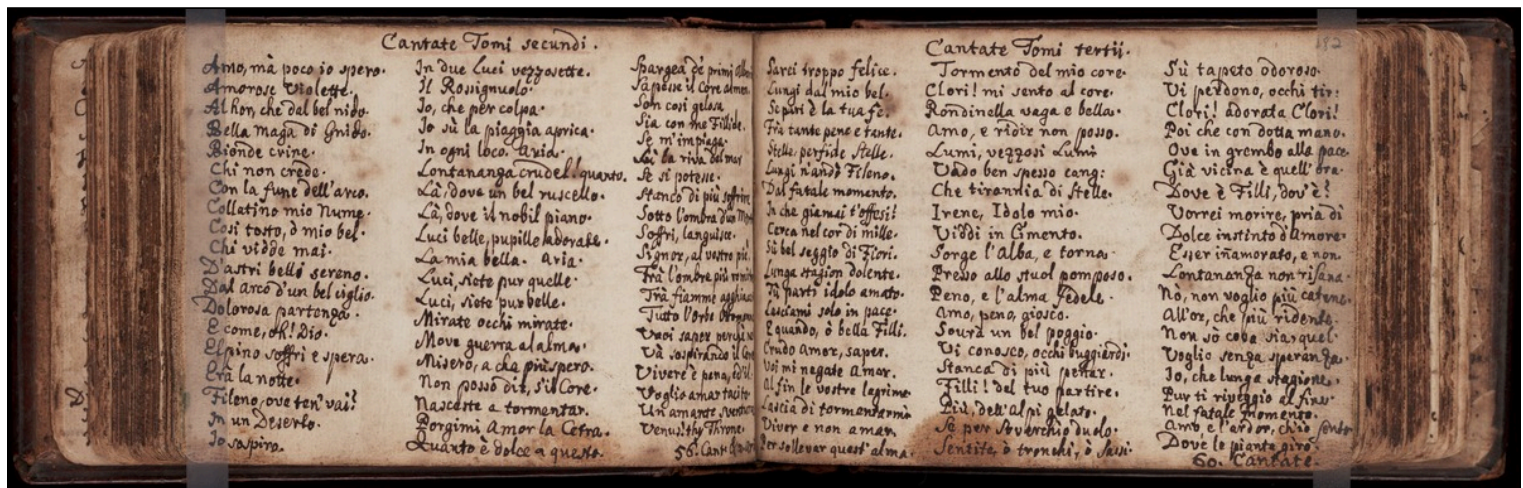 Cantate Tomi secundi.
Amo, mà poco io spero.
Amorose Violette.
Al hor, che dal bel nido.
Bella Maga di Gnido.
Bionde crine.
Chi non crede.
Con la fune dell'arco.
Collatino mio Nume.
Cosi tosto, ò mio bel.
Chi vidde mai.
D'astri bello sereno.
Dal arco d'un bel ciglio.
Dolorosa partenza.
E come, oh! Dio.
Elpino soffri e spera.
Erà la notte.
Fileno, ove ten' vai?
In un Deserto.
Io sospiro.
In due Luci vezzosette.
Il Rossignuolo.
Io, che per colpa.
Io sù la piaggia aprica.
In ogni loco. Aria.
Lontananza crudel! quanto.
Là, dove un bel ruscello.
Là, dove il nobil piano.
Luci belle, pupille adorate.
La mia bella. Aria.
Luci, siete pur quelle.
Luci, siete pur belle.
Mirate occhi mirate.
Move guerra al alma.
Misero, a che più spero.
Non posso dir, s'il Core.
Nasceste a tormentar.
Porgimi Amor la Cetra.
Quanto è dolce a questo.
Spargea de' primi
Sapesse il Core almen
Son cosi gelosa
Sia con me Fillide.
Se m'impiaga.
la riva del mar
Se si potesse.
Stanco di più soffrire
Sotto l'ombra d'un
Soffri, languisce.
Signor, al vostro piè
Frà l'ombre più
Trà fiamme
Tutto l'orbe
Vuoi saper perchè
Và sospirando il Core
Vivere è pena,
Voglio amar tacito
Un amante
Venus! thy Throne.
56. Cant.
Cantate Tomi tertii.
182
Sarei troppo felice.
Lungi dal mio bel.
Scopri è la tua fe.
Frà tante pene e tante.
Stelle, perfide stelle.
Lungi n'andò Fileno.
Dal fatale momento.
In che giamai t'offesi!
Cerca nel cor di mille.
Sù bel seggio di Fiori.
Lunga stagion dolente.
Tu parti idolo amato.
Lasciami solo in pace.
E quando, ò bella Filli.
Crudo Amor, saper.
Voi mi negate Amar.
Al fin le vostre lagrime.
Lascia di tormentarmi
Viver e non amar.
Per sollevar quest' alma.
Tormento del mio core.
Clori! mi sento al core.
Rondinella vaga e bella.
Amo, e ridir non posso.
Lumi, vezzosi Lumi
Vado ben spesso cang:
Che tirannia di stelle.
Irene, Idolo mio.
Viddi in Cimento.
Sorge l'Alba, e torna.
Presso allo stuol pomposo.
Peno, e l'alma fedele.
Amo, peno, gioisco.
Sovra un bel poggio.
Vi conosco, occhi buggiardi.
Stanca di più penar.
Filli! del tuo partire.
Più, dell'Alpi gelato.
Sè per soverchio duolo.
Sentite, ò tronchi, ò sassi.
Sù tapeto odoroso.
Vi perdono, occhi tir:
Clori! adorata Clori!
Poi che con dotta mano.
Ove in grembo alla pace
Già vicina è quell'hora.
Dove è Filli, dov'è?
Vorrei morire, pria di
Dolce instinto d'Amore.
Esser iñamorato, e non.
Lontananza non risana.
Nò, non voglio più catene.
All'or, che più ridente.
Non sò cosa sia quel.
Voglio senza speranza.
Io, che lunga stagione.
Pur ti riveggio al fine.
Nel fatale momento.
Amo e l'ardor, ch'io sento
Dove le piante giro.
60. Cantate.